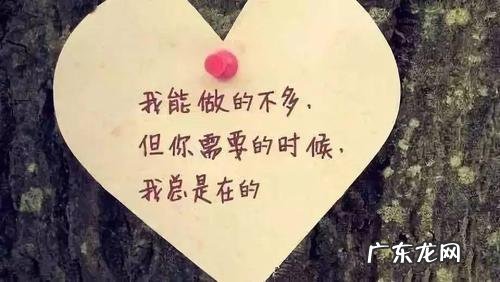 我能做的不多.
但你需要的时候,
我总是在的
广东龙网